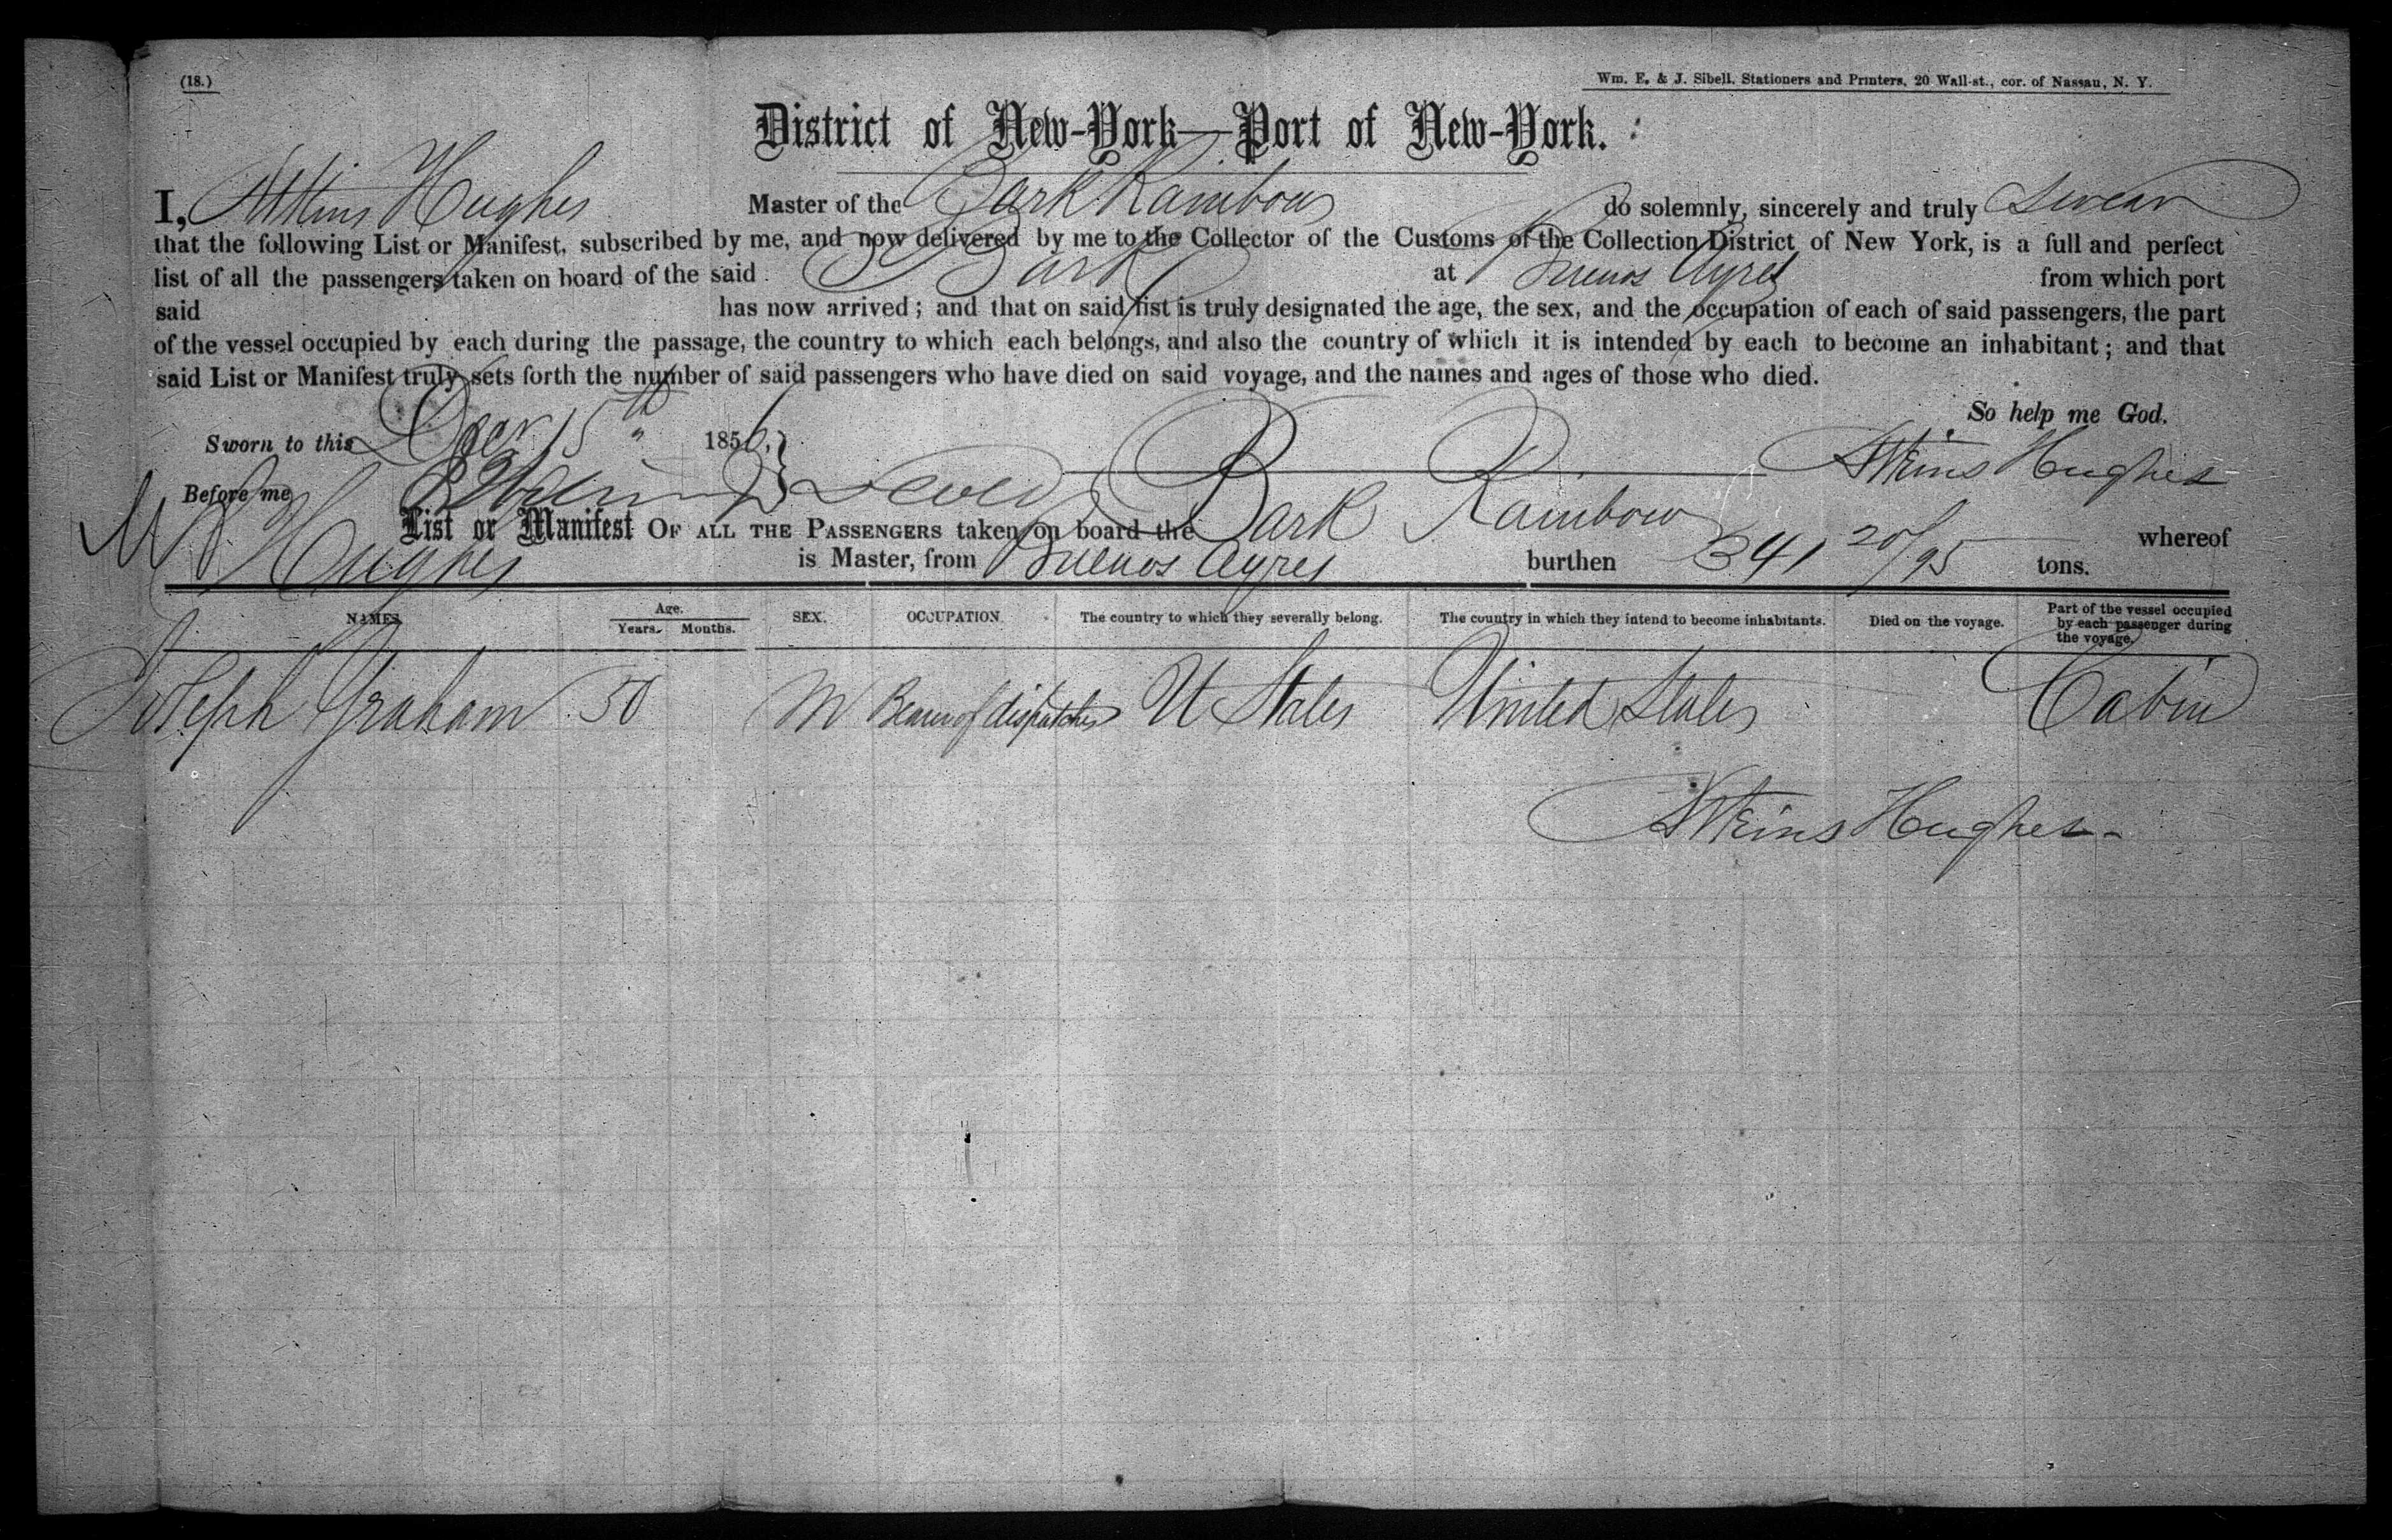 (18.)
Wm. E. & J. Sibell, Stationers and Printers, 20 Wall-st., cor. of Nassau, N. Y.
District of New-York—Port of New-York.
I, Atkins Hughes Master of the Bark Rainbow do solemnly, sincerely and truly swear
that the following List or Manifest, subscribed by me, and now delivered by me to the Collector of the Customs of the Collection District of New York, is a full and perfect
list of all the passengers taken on board of the said Bark at Buenos Ayres from which port
said has now arrived; and that on said list is truly designated the age, the sex, and the occupation of each of said passengers, the part
of the vessel occupied by each during the passage, the country to which each belongs, and also the country of which it is intended by each to become an inhabitant; and that
said List or Manifest truly sets forth the number of said passengers who have died on said voyage, and the names and ages of those who died.
So help me God.
Sworn to this Decr 15th 1856,
Atkins Hughes
Before me
List or Manifest OF ALL THE PASSENGERS taken on board the Bark Rainbow whereof
Hughes is Master, from Buenos Ayres burthen 341 20/95 tons.
NAMES. Age. Years. Months. SEX. OCCUPATION. The country to which they severally belong. The country in which they intend to become inhabitants. Died on the voyage. Part of the vessel occupied by each passenger during the voyage.
Joseph Graham 50 M Bearer of dispatches U States United States Cabin
Atkins Hughes